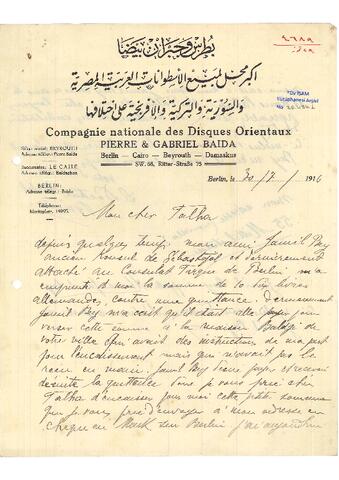 بطرس وجبران بيضا
اكبر محل لمبيع الاسطوانات العربية المصرية
والسورية والتركية والافرنجية على اختلافها
Compagnie nationale des Disques Orientaux
PIERRE & GABRIEL BAIDA
Berlin – Cairo – Beyrouth – Damaskus
SW. 68, Ritter-Straße 75
BEYROUTH
Adresse télégr.: Pierre Baida
LE CAIRE
Adresse télégr.: Baidaphon
BERLIN:
Adresse télégr.: Baida
Téléphone:
Berlin, le 30/7/1926
Mon cher Talha
depuis quelque temps mon ami Jamil Bey
ancien Konsul de Sébastopol et dernièrement
attaché au Consulat Turque de Berlin m'a
emprunté la somme de livres
allemandes, contre une quittance. Dernièrement
Jamil Bey m'a écrit qu'il était allé pour
verser cette somme à la maison
votre ville qui avait des instructions de ma part
pour l'encaissement mais qui n'avait pas le
reçu en main. Jamil Bey
la quittance je vous prie cher
Talha d'encaisser pour moi cette petite somme
que je vous prie d'envoyer à mon adresse en
chèque en Mark sur Berlin j'ai aujourd'hui